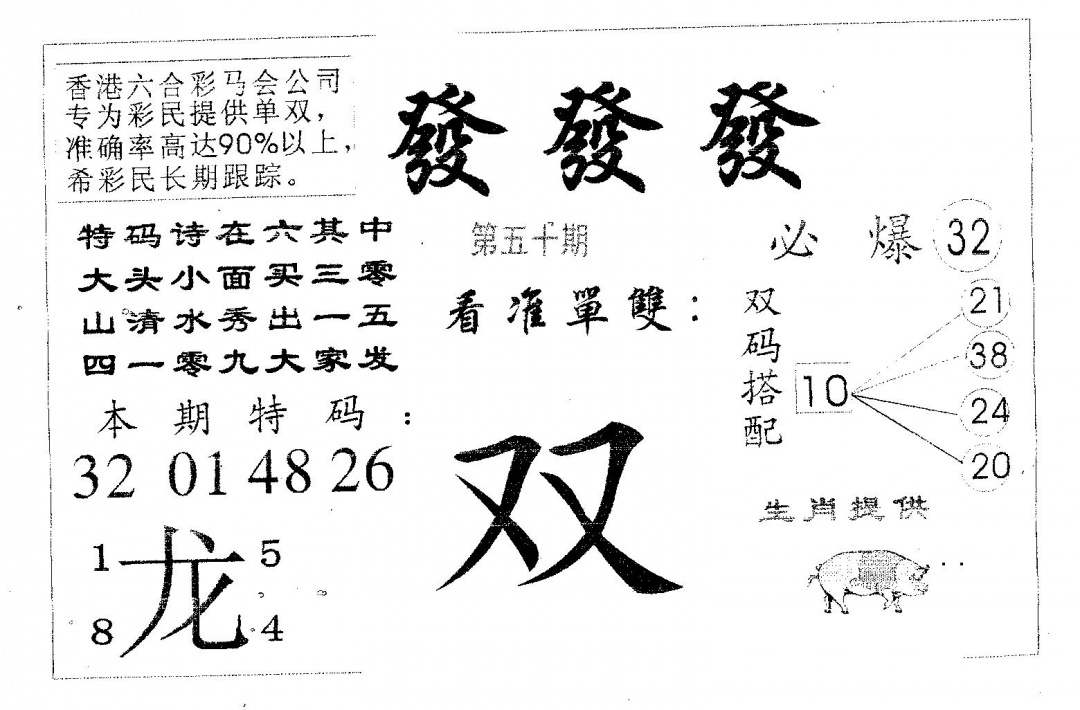 香港六合彩马会公司
专为彩民提供单双，
准确率高达90%以上，
希彩民长期跟踪。
發發發
特码诗在六其中
大头小面买三零
山清水秀出一五
四一零九大家发
本期特码：
32 01 48 26
1 龙 5
8 4
第五十期
看准單雙：
双
必爆 32
双码搭配 10
21
38
24
20
生肖提供